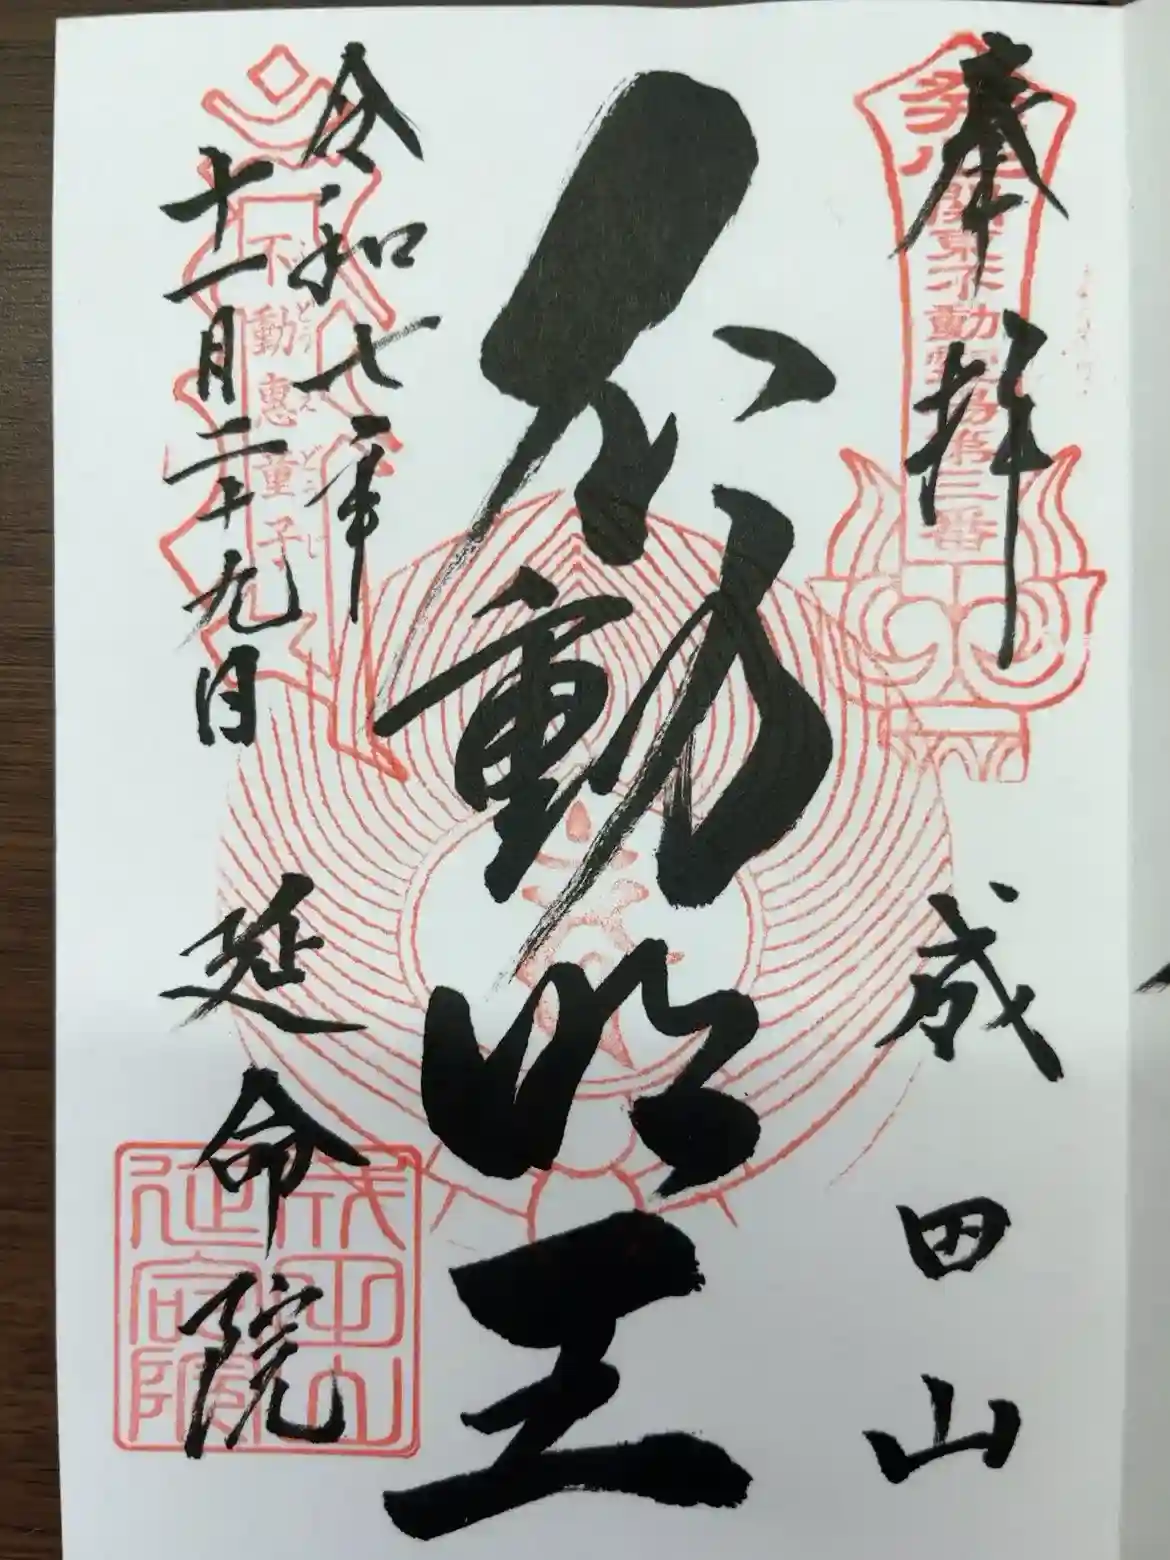 奉拝
成田山
発心
関東不動霊場第三番
不動明王
令和七年
十一月二十九日
不動惠童子
どう
え
どう
じ
延命院
成田山
延命院